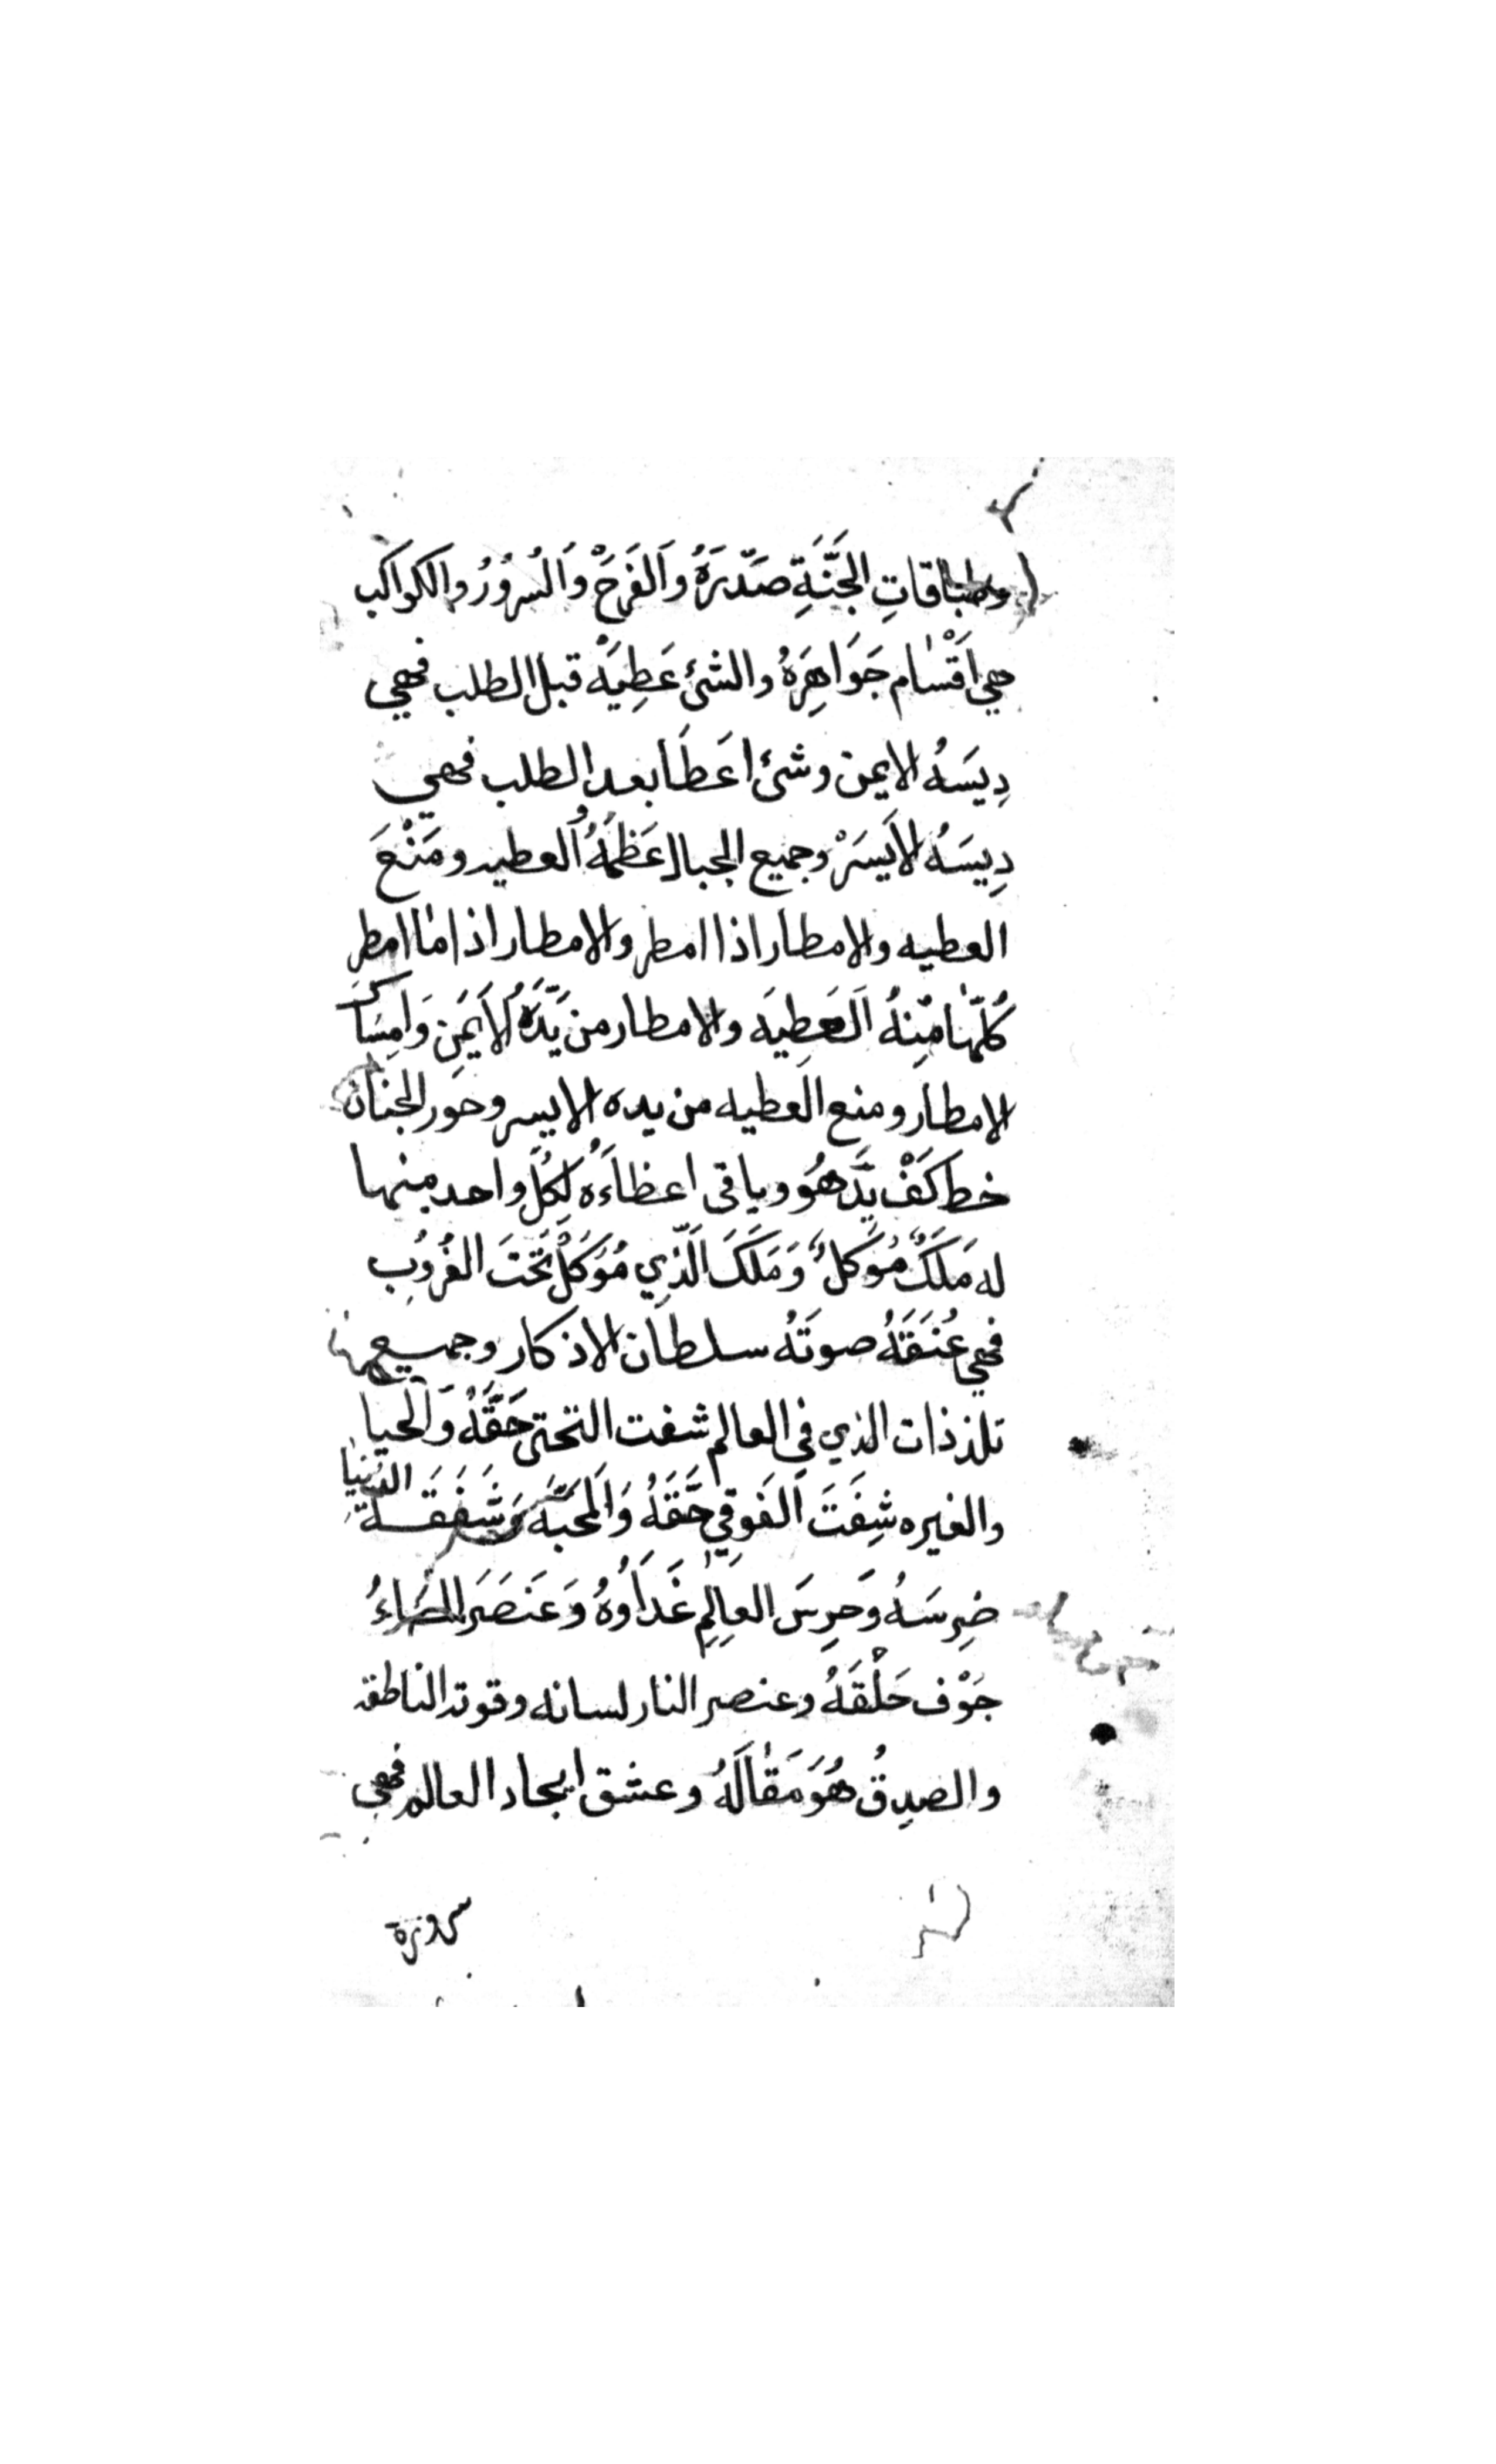 وطباقاتِ الجَنَّةِ صَدّرَهُ وَالفَرَحْ وَالسُرُورُ والكواكب
هي اَقْسٰام جَوَاهِرَهُ والشئ عَطِيَهْ قبل الطلب فهي
دِيسَهُ الايمن وشئ اعَطَا بعد الطلب فهي
دِيسَهُ الاَيسَرْ وجميع الجبال عَظَمَهُ العطيه ومَنْعَ
العطيه والامطار اذا امطر والامطار اذا مٰا امطر
كُلّهٰا مِنهُ اَلعَطِيَه والامطار من يَّدَهُ الاَيمَنِ وَامِسَاكَ
الامطار ومنع العطيه من يده الايسر وحور الجنان
خط كَفْ يَّدَهُو وباقى اعظاءَهُ لكُل واحد منها
له مَلَكٌ مُوَكلٌ وَمَلَكَ الَّذِي مُوَكَلْ تَحتَ الغُروُبِ
فهي عُنَقَهُ صوتَهُ سلطان الاذكار وجميع
تلذذات الذي في العالم شفت التحتى حَقَّهُ وَالحيا
والغيره شِفَتَ اَلفَوقِي حَّقَهُ وَالمحَبَّه وَشَفَقَةَ الدُنيٰا
ضِرسَهُ وَحرِسَ العٰالِمِ غَدَاوُهُ وَعَنصَرَ المَاءُ
جَوْف حَلْقَهُ وعنصر النار لسانه وقوته الناطقه
والصدِقُ هُوَ مَقٰالَهُ وعشق ايجاد العالم فهي